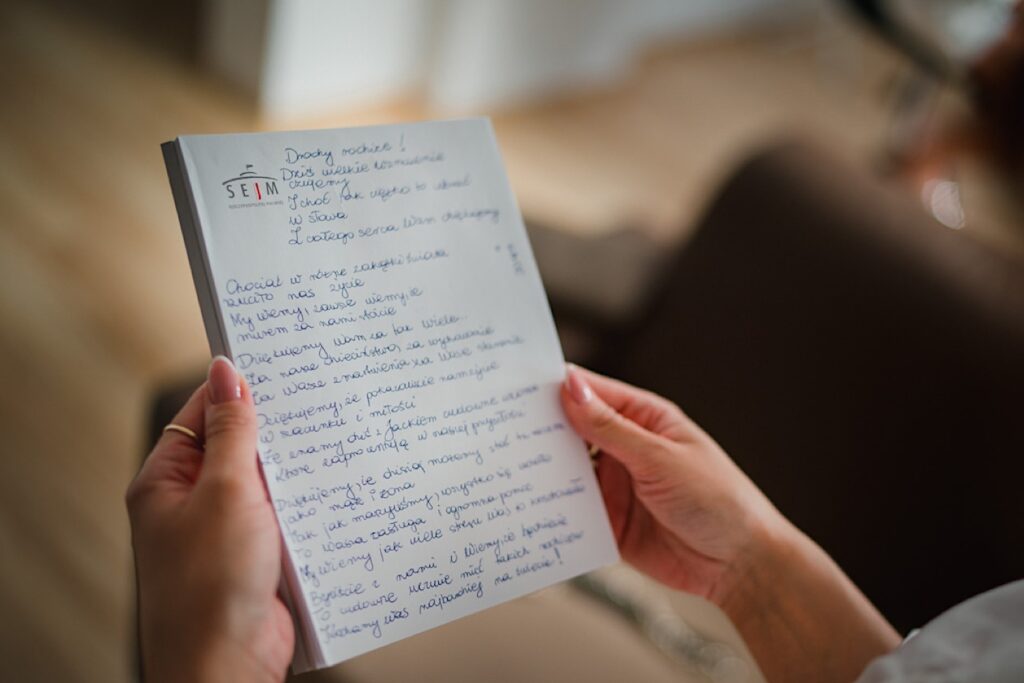 SEJM
RZECZYPOSPOLITEJ POLSKIEJ
Drodzy rodzice!
Dziś wielkie wzruszenie
czujemy
I choć jak ciężko to ubrać
w słowa
Z całego serca Wam dziękujemy
Chociaż w różne zakątki świata
rzuciło nas życie
My wiemy, zawsze wiemy, że
murem za nami stoicie
Dziękujemy Wam za tak wiele...
Za nasze dzieciństwo, za wychowanie
Za Wasze
Dziękujemy, że pokazaliście nam
w szacunku i miłości
Że znamy dziś z Jackiem cudowne
Które w naszej przyszłości
Dziękujemy, że dzisiaj możemy stać tu
jako mąż i żona
Tak jak marzyliśmy, wszystko się udało
To Wasza zasługa i ogromna pomoc
My wiemy jak wiele stresu Was to kosztowało
Byliście z nami i wiemy, że będziecie
To cudowne uczucie mieć takich rodziców
Kochamy Was najbardziej na świecie!